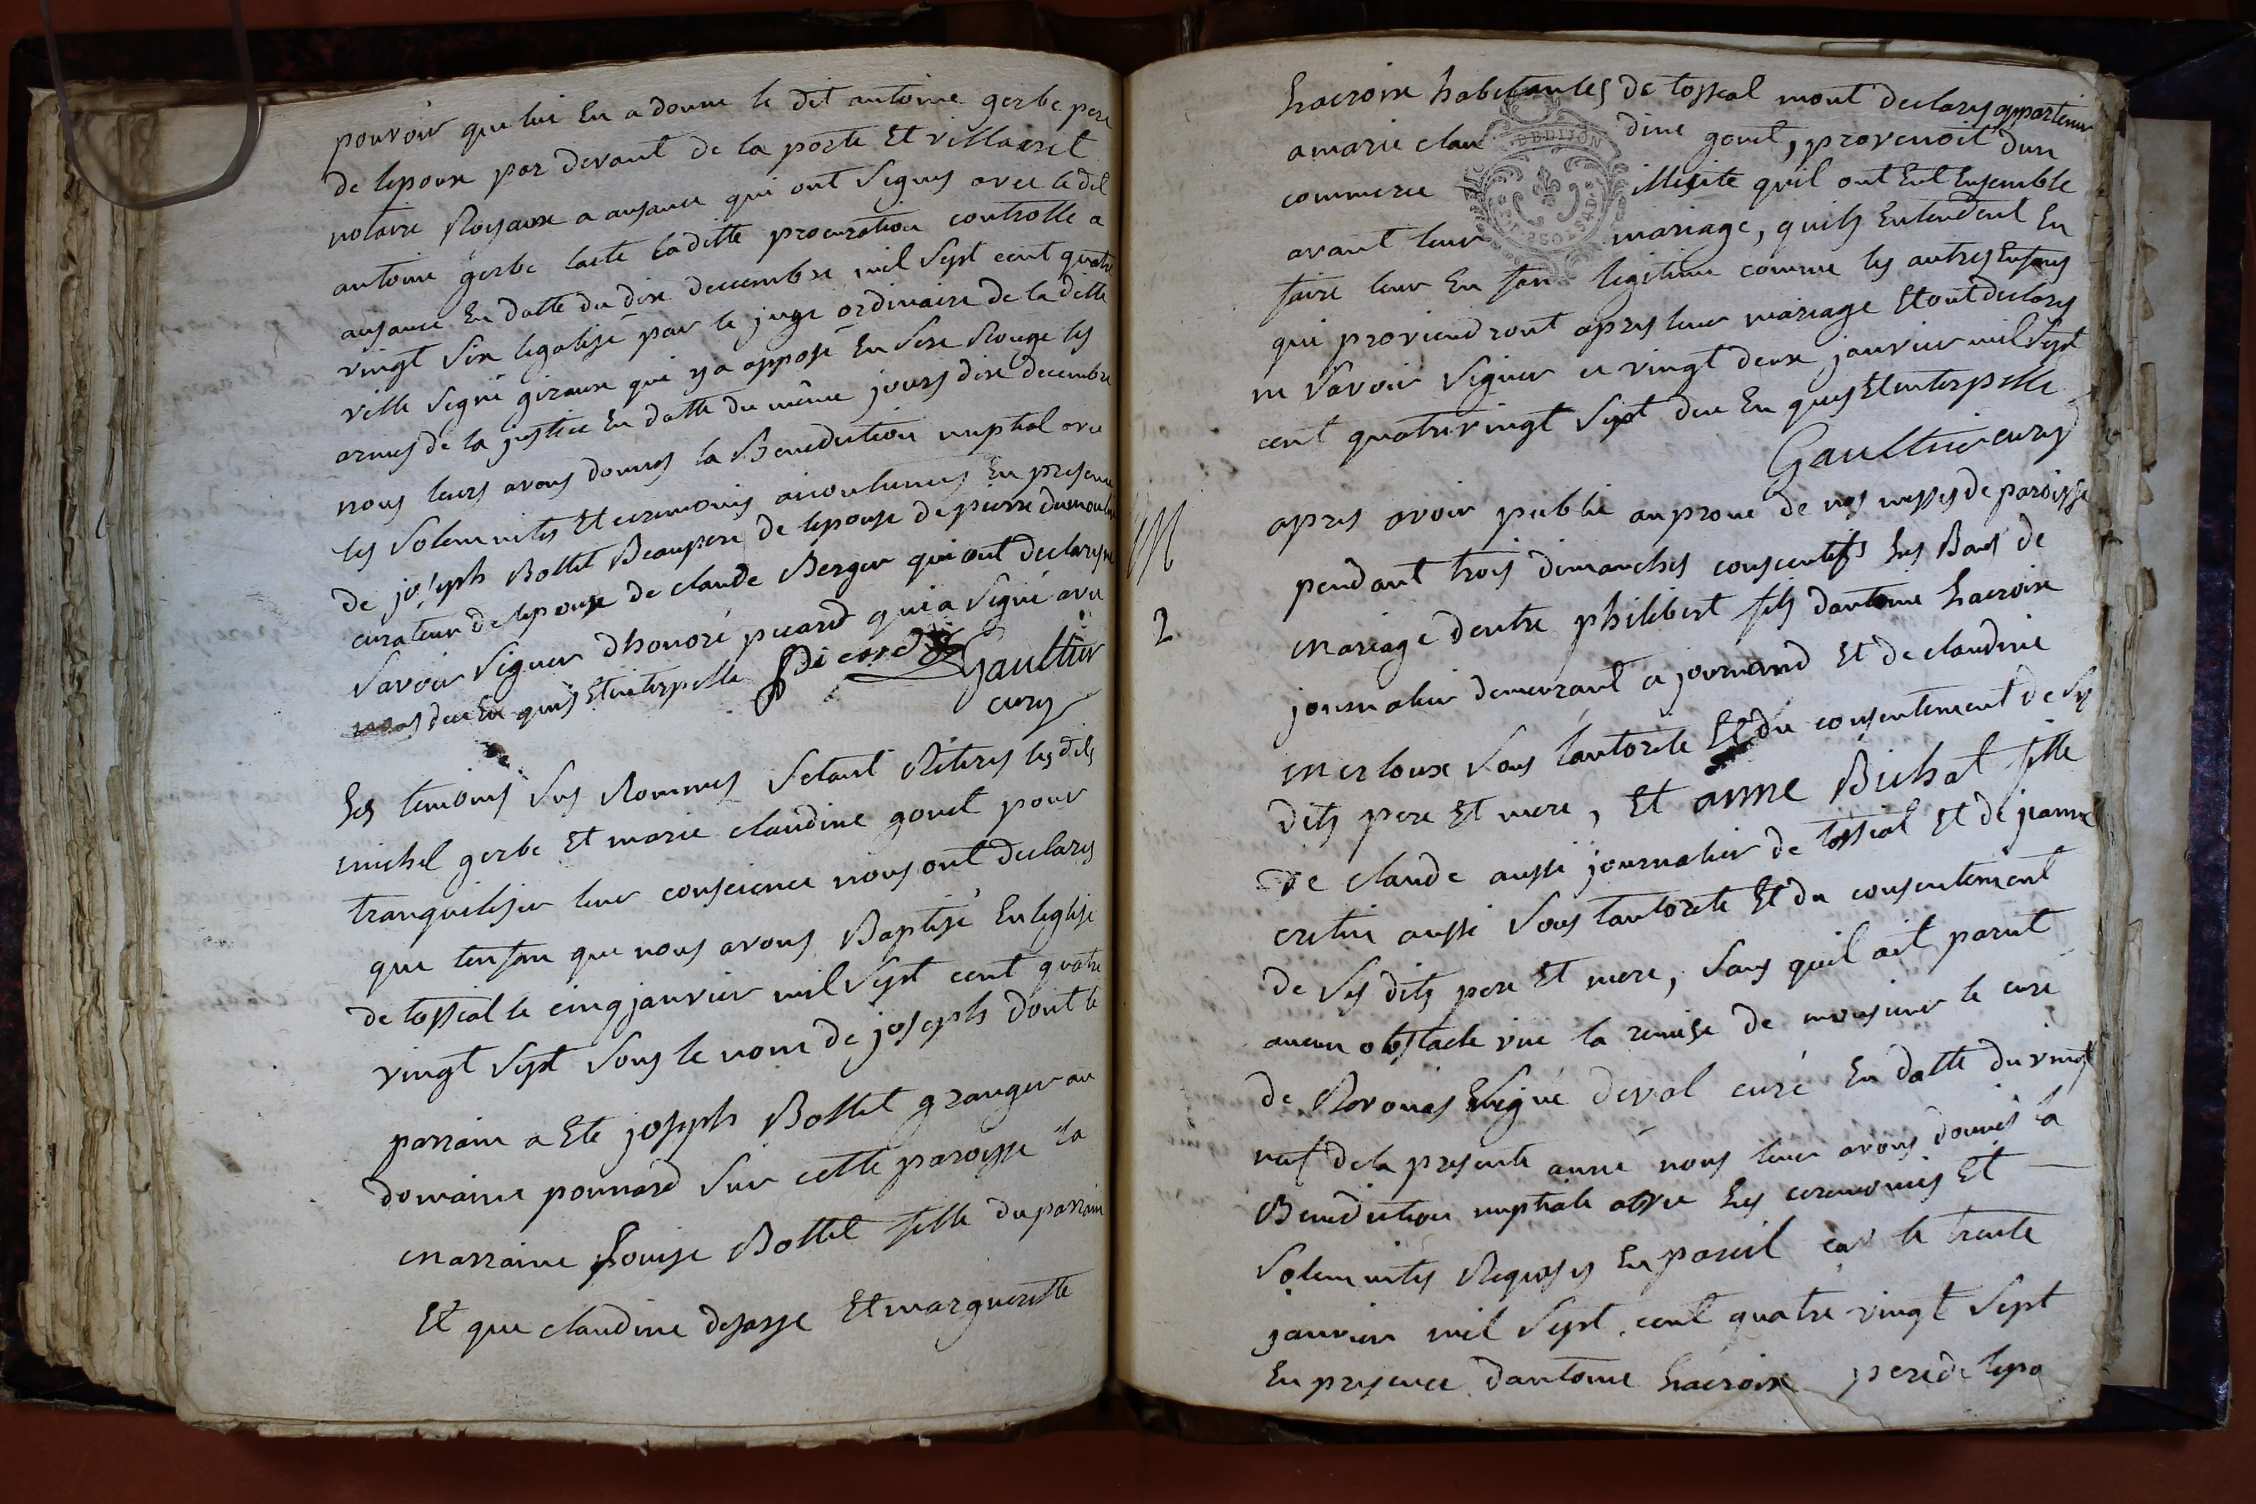 pouvoir que lui en a donne le dit antoine gerbe pere
de lepoux par devant de la porte Et villaret
notaire Royaux a ausance qui ont Signes avec le dit
antoine gerbe laite laditte procuration controlle a
ausance En datte du dix decembre mil Sept cent quatre
vingt Six legalisé par le juge ordinaire de la ditte
ville Signé giraux qui y a apposé En Sire Rouge les
armes de la justice En datte du même jours dix decembre
nous leurs avons donnes la Benediction nuptial avec
les Solemnites Et ceremonies acoutumes En presence
de joseph Bottet Beaupere de lepouse de pierre dumoulin
curateur de lepouse de claude Berger qui ont declares ne
Savoir Signer dhonoré picard qui a Signé avec
nous deu En quis Et interpelle Picard Gaultier
curé
Les temoins Sus Nommes Setant Retires les dits
michel gerbe Et marie claudine gonet pour
tranquiliser leur conscience nous ont declares
que lenfan que nous avons Baptisé En leglise
de tossial le cinq janvier mil Sept cent quatre
vingt Sept Sous le nom de joseph dont le
parrain a Ete joseph Bottet granger au
domaine ponnard Sur cette paroisse la
marraine Louise Bottet fille du parrain
Et que claudine desasse Et margueritte
Lacroix habitantes de tossial mont declares appartenir
a marie clau dine gonet, provenoit dun
commerce illisite quil ont Eut Ensemble
avant leur mariage, quils Entendent En
faire leur En fan legitime comme les autres Enfans
qui proviendront apres leur mariage Et ont declares
ne Savoir Signer ce vingt deux janvier mil Sept
cent quatrevingt Sept deu En quis Et interpelle
Gaultier curé
M
2
apres avoir publié au prone de nos messes de paroisse
pendant trois dimanches consecutifs Les Bans de
mariage dentre philibert fils dantoine Lacroix
journalier demeurant a journand Et de claudine
merloux Sous lautorite Et du consentement de Ses
dits pere Et mere, Et anne Bichat fille
de claude aussi journalier de tossial Et de jeanne
cretin aussi Sous lautorite Et du consentement
de Ses dits pere Et mere, Sans quil ait parut
aucun obstacle vue la remise de monsieur le curé
de Revonas Signé deval curé En datte du vingt
neuf de la presente année nous leur avons donnés la
Benediction nuptiale avec Les ceremonies Et
Solemnités Requises En pareil cas le trante
janvier mil Sept cent quatre vingt Sept
En presence dantoine Lacroix pere de lepo